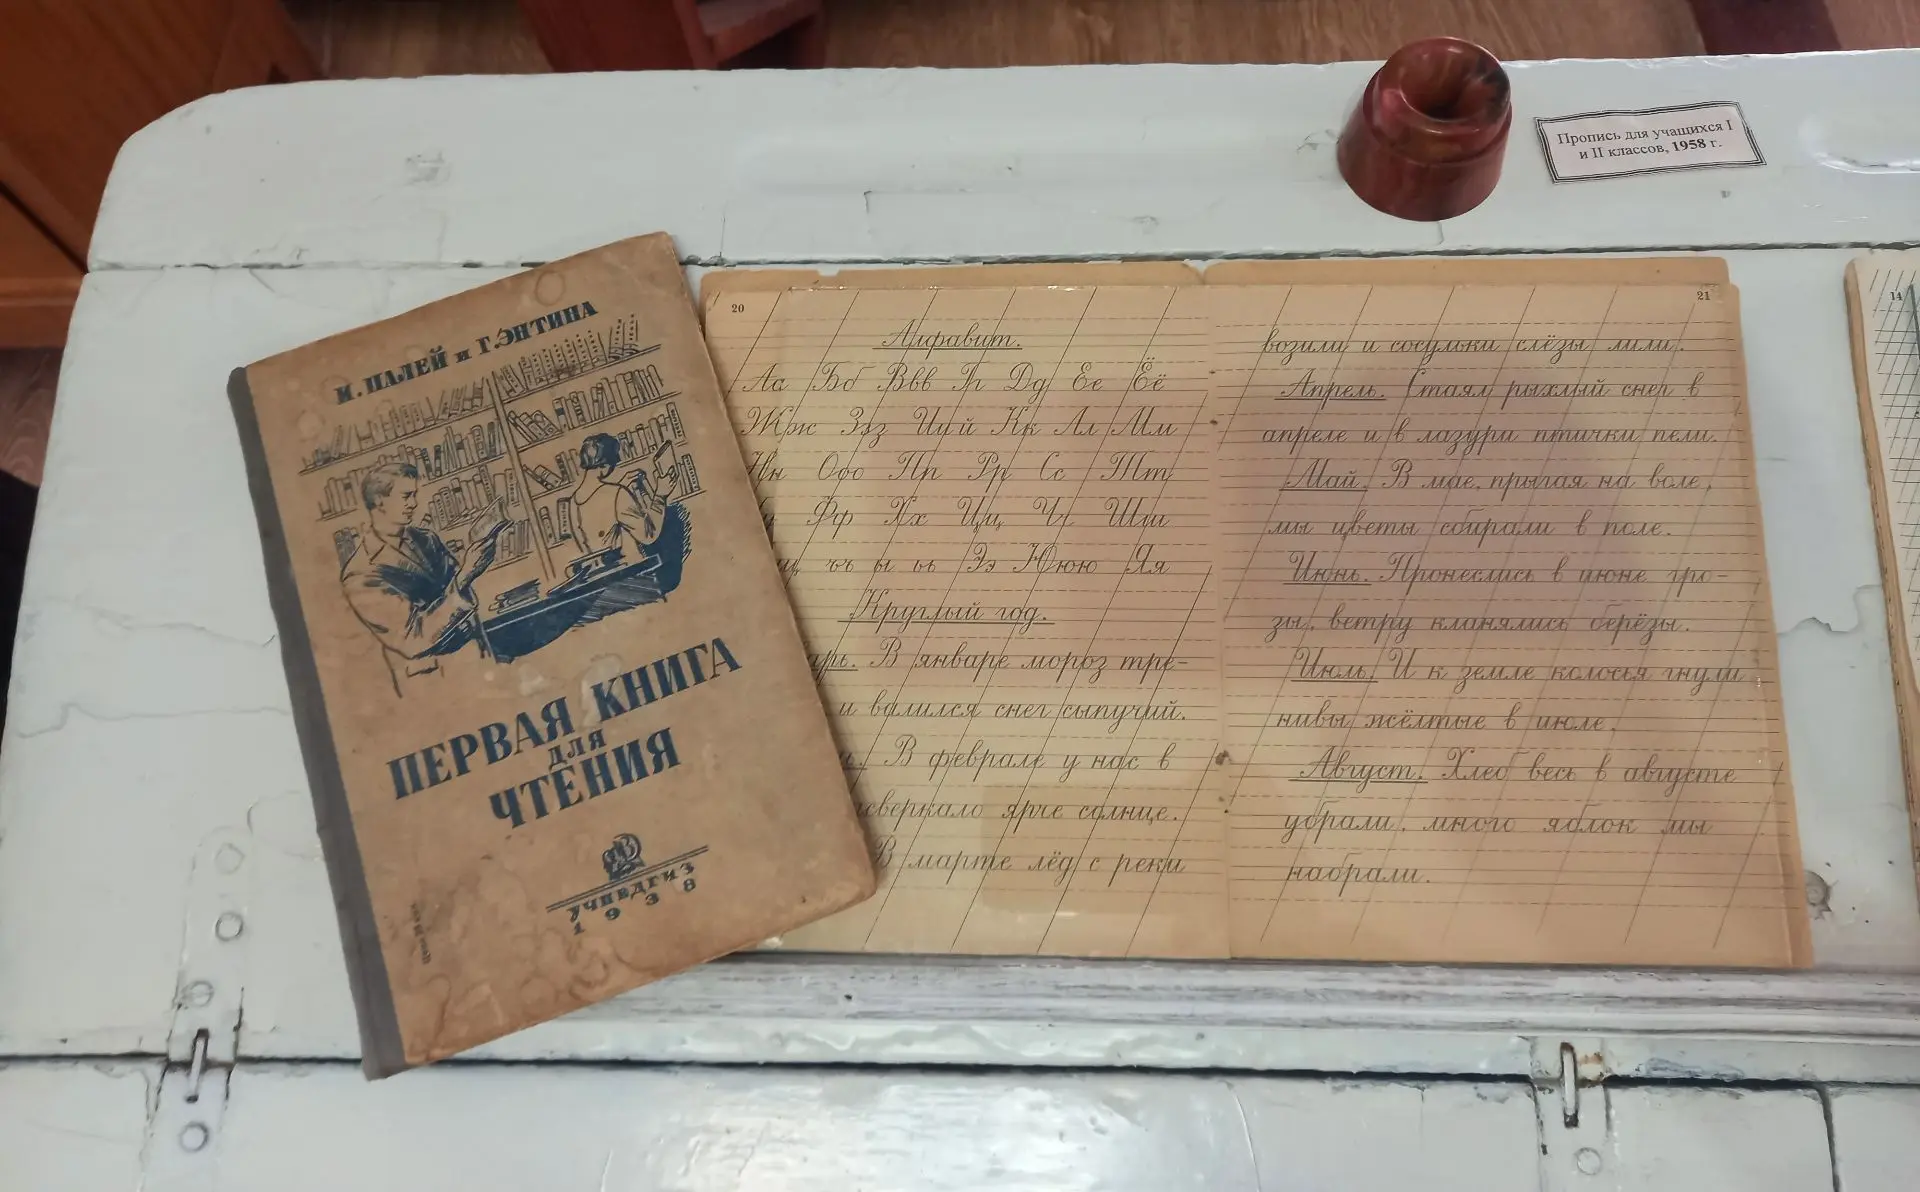 Пропись для учащихся I
и II классов, 1958 г.
И. ПАЛЕЙ и Г. ЭНТИНА
ПЕРВАЯ КНИГА
для
ЧТЕНИЯ
УЧПЕДГИЗ
1938
20
Алфавит.
Аа Бб Ввв Гг Дд Ее Ёё
Жж Ззз Ии й Кк Лл Мм
Нн Ооо Пп Рр Сс Тт
Фф Хх Цц Чч Шш
ъъ ы ьь Ээ Ююю Яя
Круглый год.
В январе мороз тре-
и валился снег сыпучий.
В феврале у нас в
ярче солнце.
В марте лёд с реки
21
возили и сосульки слёзы лили.
Апрель. Стаял рыхлый снег в
апреле и в лазури птички пели.
Май. В мае, прыгая на воле,
мы цветы сбирали в поле.
Июнь. Пронеслись в июне гро-
зы, ветру кланялись берёзы.
Июль. И к земле колосья гнули
нивы жёлтые в июле.
Август. Хлеб весь в августе
убрали, много яблок мы
набрали.
14